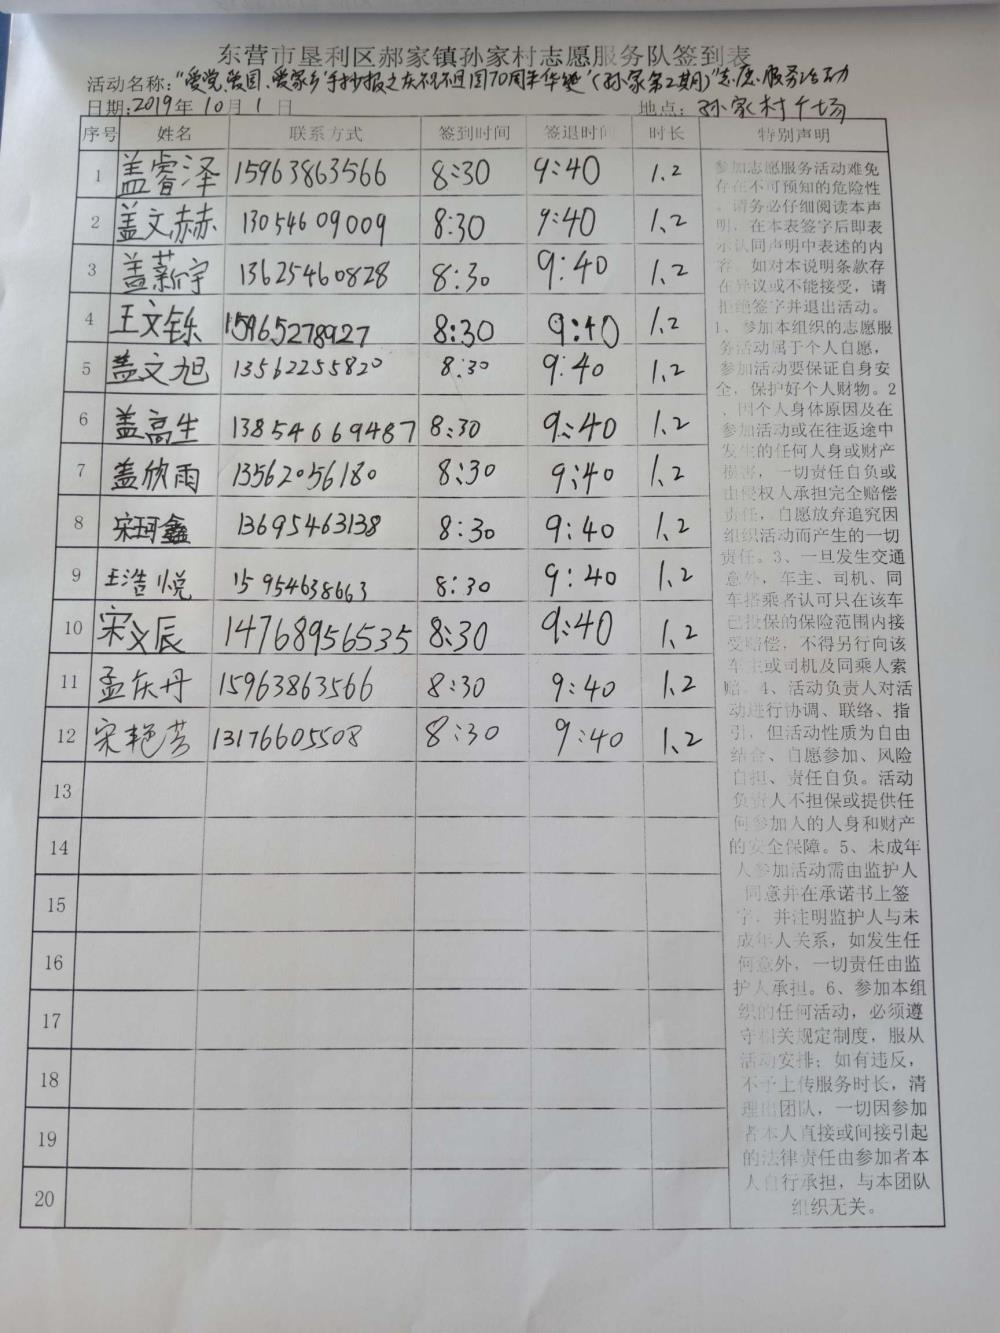 东营市垦利区郝家镇孙家村志愿服务队签到表
活动名称：“爱党、爱国、爱家乡‘手抄报之庆祝祖国70周年华诞’（孙家第2期）”志愿服务活动
日期：2019年10月1日 地点：孙家村广场
序号 姓名 联系方式 签到时间 签退时间 时长 特别声明
1 盖睿泽 15963863566 8:30 9:40 1.2
2 盖文赫 13054609009 8:30 9:40 1.2
3 盖薪宇 13625460828 8:30 9:40 1.2
4 王文铄 15965278927 8:30 9:40 1.2
5 盖文旭 13562255820 8:30 9:40 1.2
6 盖高生 13854669487 8:30 9:40 1.2
7 盖欣雨 13562056180 8:30 9:40 1.2
8 宋珂鑫 13695463138 8:30 9:40 1.2
9 王浩悦 15954638663 8:30 9:40 1.2
10 宋文辰 14768956535 8:30 9:40 1.2
11 孟庆丹 15963863566 8:30 9:40 1.2
12 宋艳芳 13176605508 8:30 9:40 1.2
13
14
15
16
17
18
19
20
参加志愿服务活动难免
存在不可预知的危险性
，请务必仔细阅读本声
明，在本表签字后即表
示认同声明中表述的内
容。如对本说明条款存
在异议或不能接受，请
拒绝签字并退出活动。
1、参加本组织的志愿服
务活动属于个人自愿，
参加活动要保证自身安
全，保护好个人财物。2
、因个人身体原因及在
参加活动或在往返途中
发生的任何人身或财产
损害，一切责任自负或
由侵权人承担完全赔偿
责任，自愿放弃追究因
组织活动而产生的一切
责任。3、一旦发生交通
意外，车主、司机、同
车搭乘者认可只在该车
已投保的保险范围内接
受赔偿，不得另行向该
车主或司机及同乘人索
赔。4、活动负责人对活
动进行协调、联络、指
引，但活动性质为自由
结合、自愿参加、风险
自担、责任自负。活动
负责人不担保或提供任
何参加人的人身和财产
的安全保障。5、未成年
人参加活动需由监护人
同意并在承诺书上签
字，并注明监护人与未
成年人关系，如发生任
何意外，一切责任由监
护人承担。6、参加本组
织的任何活动，必须遵
守相关规定制度，服从
活动安排；如有违反，
不予上传服务时长，清
理出团队，一切因参加
者本人直接或间接引起
的法律责任由参加者本
人自行承担，与本团队
组织无关。